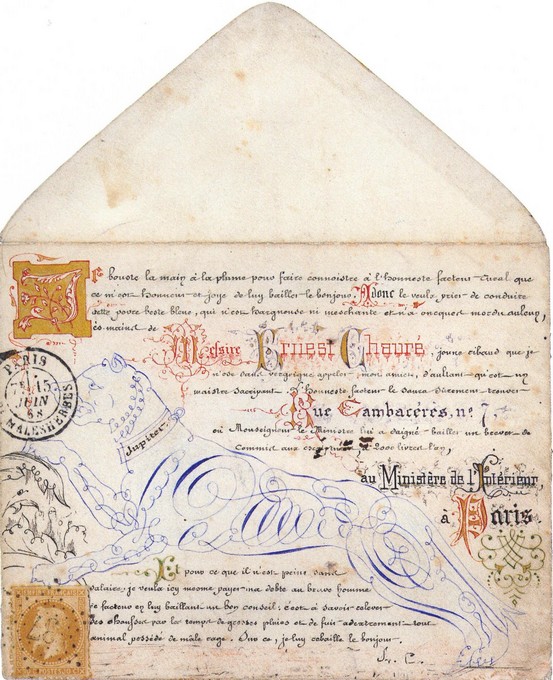 Je boute la main à la plume pour faire connoistre à l'honneste facteur rural que
ce m'est honneur et joye de luy bailler le bonjour. Adonc le veulx prier de conduire
cette povre beste blene, qui n'est hargneuse ni meschante et n'a oncques mordu aulcun,
ès mains de Messire Ernest Chauré, jeune ribaud que je
n'ose sans vergoigne appeler mon amict, d'aultant qu'est ung
maistre sacripant. L'honneste facteur le
Rue Cambacérès, nº 7
où Monseigneur le Ministre lui a daigné bailler un brevet de
Commis aux 2000 livres l'an,
au Ministère de l'Intérieur,
à Paris
Jupiter
Et pour ce que il n'est peine sans
salaire, je veulx icy mesme payer ma debte au brave homme
de facteur en luy baillant un bon conseil: c'est à savoir
des chausses par les temps de grosses pluies et de fuir tout
animal possédé de male rage. je luy rebaille le bonjour.
PARIS
15
JUIN
68
MALESHERBES
POSTES